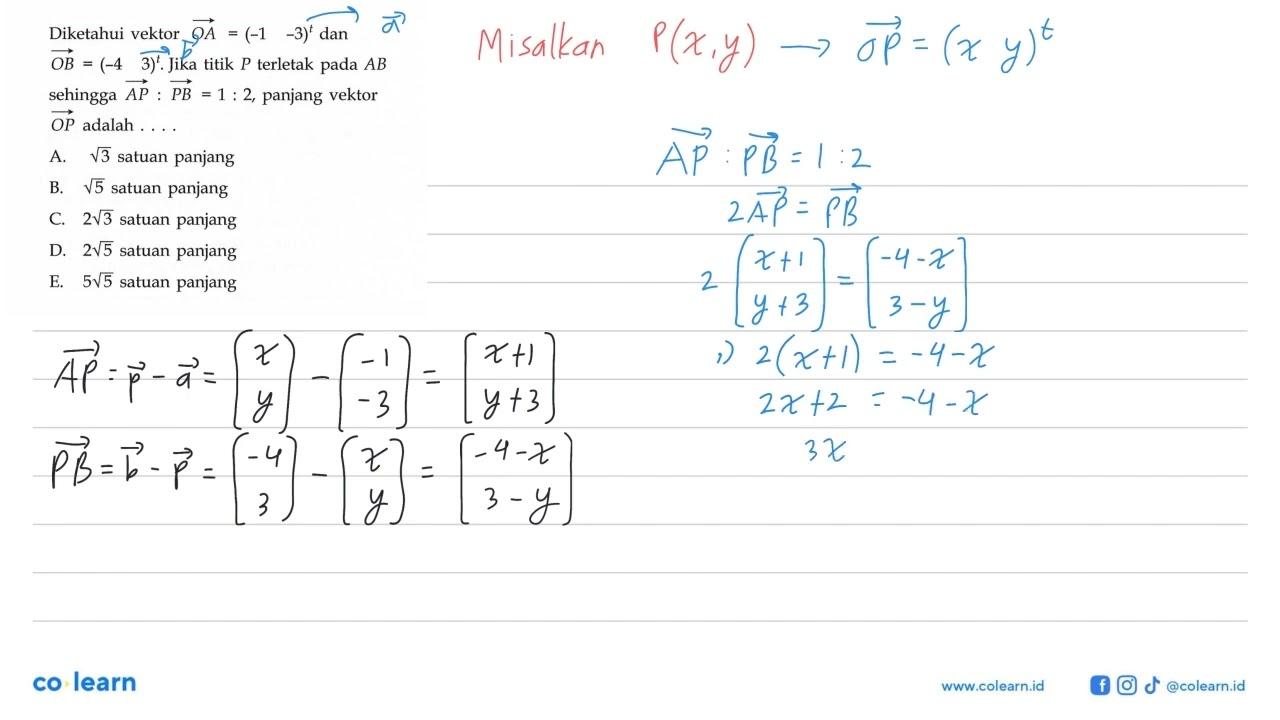 Diketahui vektor OA = (-1 -3)^t dan
OB = (-4 3)^t. Jika titik P terletak pada AB
sehingga AP : PB = 1 : 2, panjang vektor
OP adalah . . . .
A. √3 satuan panjang
B. √5 satuan panjang
C. 2√3 satuan panjang
D. 2√5 satuan panjang
E. 5√5 satuan panjang
a
b
Misalkan P(x,y) → OP = (x y)^t
AP : PB = 1 : 2
2AP = PB
2 (x+1 y+3) = (-4-x 3-y)
1) 2(x+1) = -4-x
2x+2 = -4-x
3x
AP = p - a = (x y) - (-1 -3) = (x+1 y+3)
PB = b - p = (-4 3) - (x y) = (-4-x 3-y)
co learn
www.colearn.id
@colearn.id